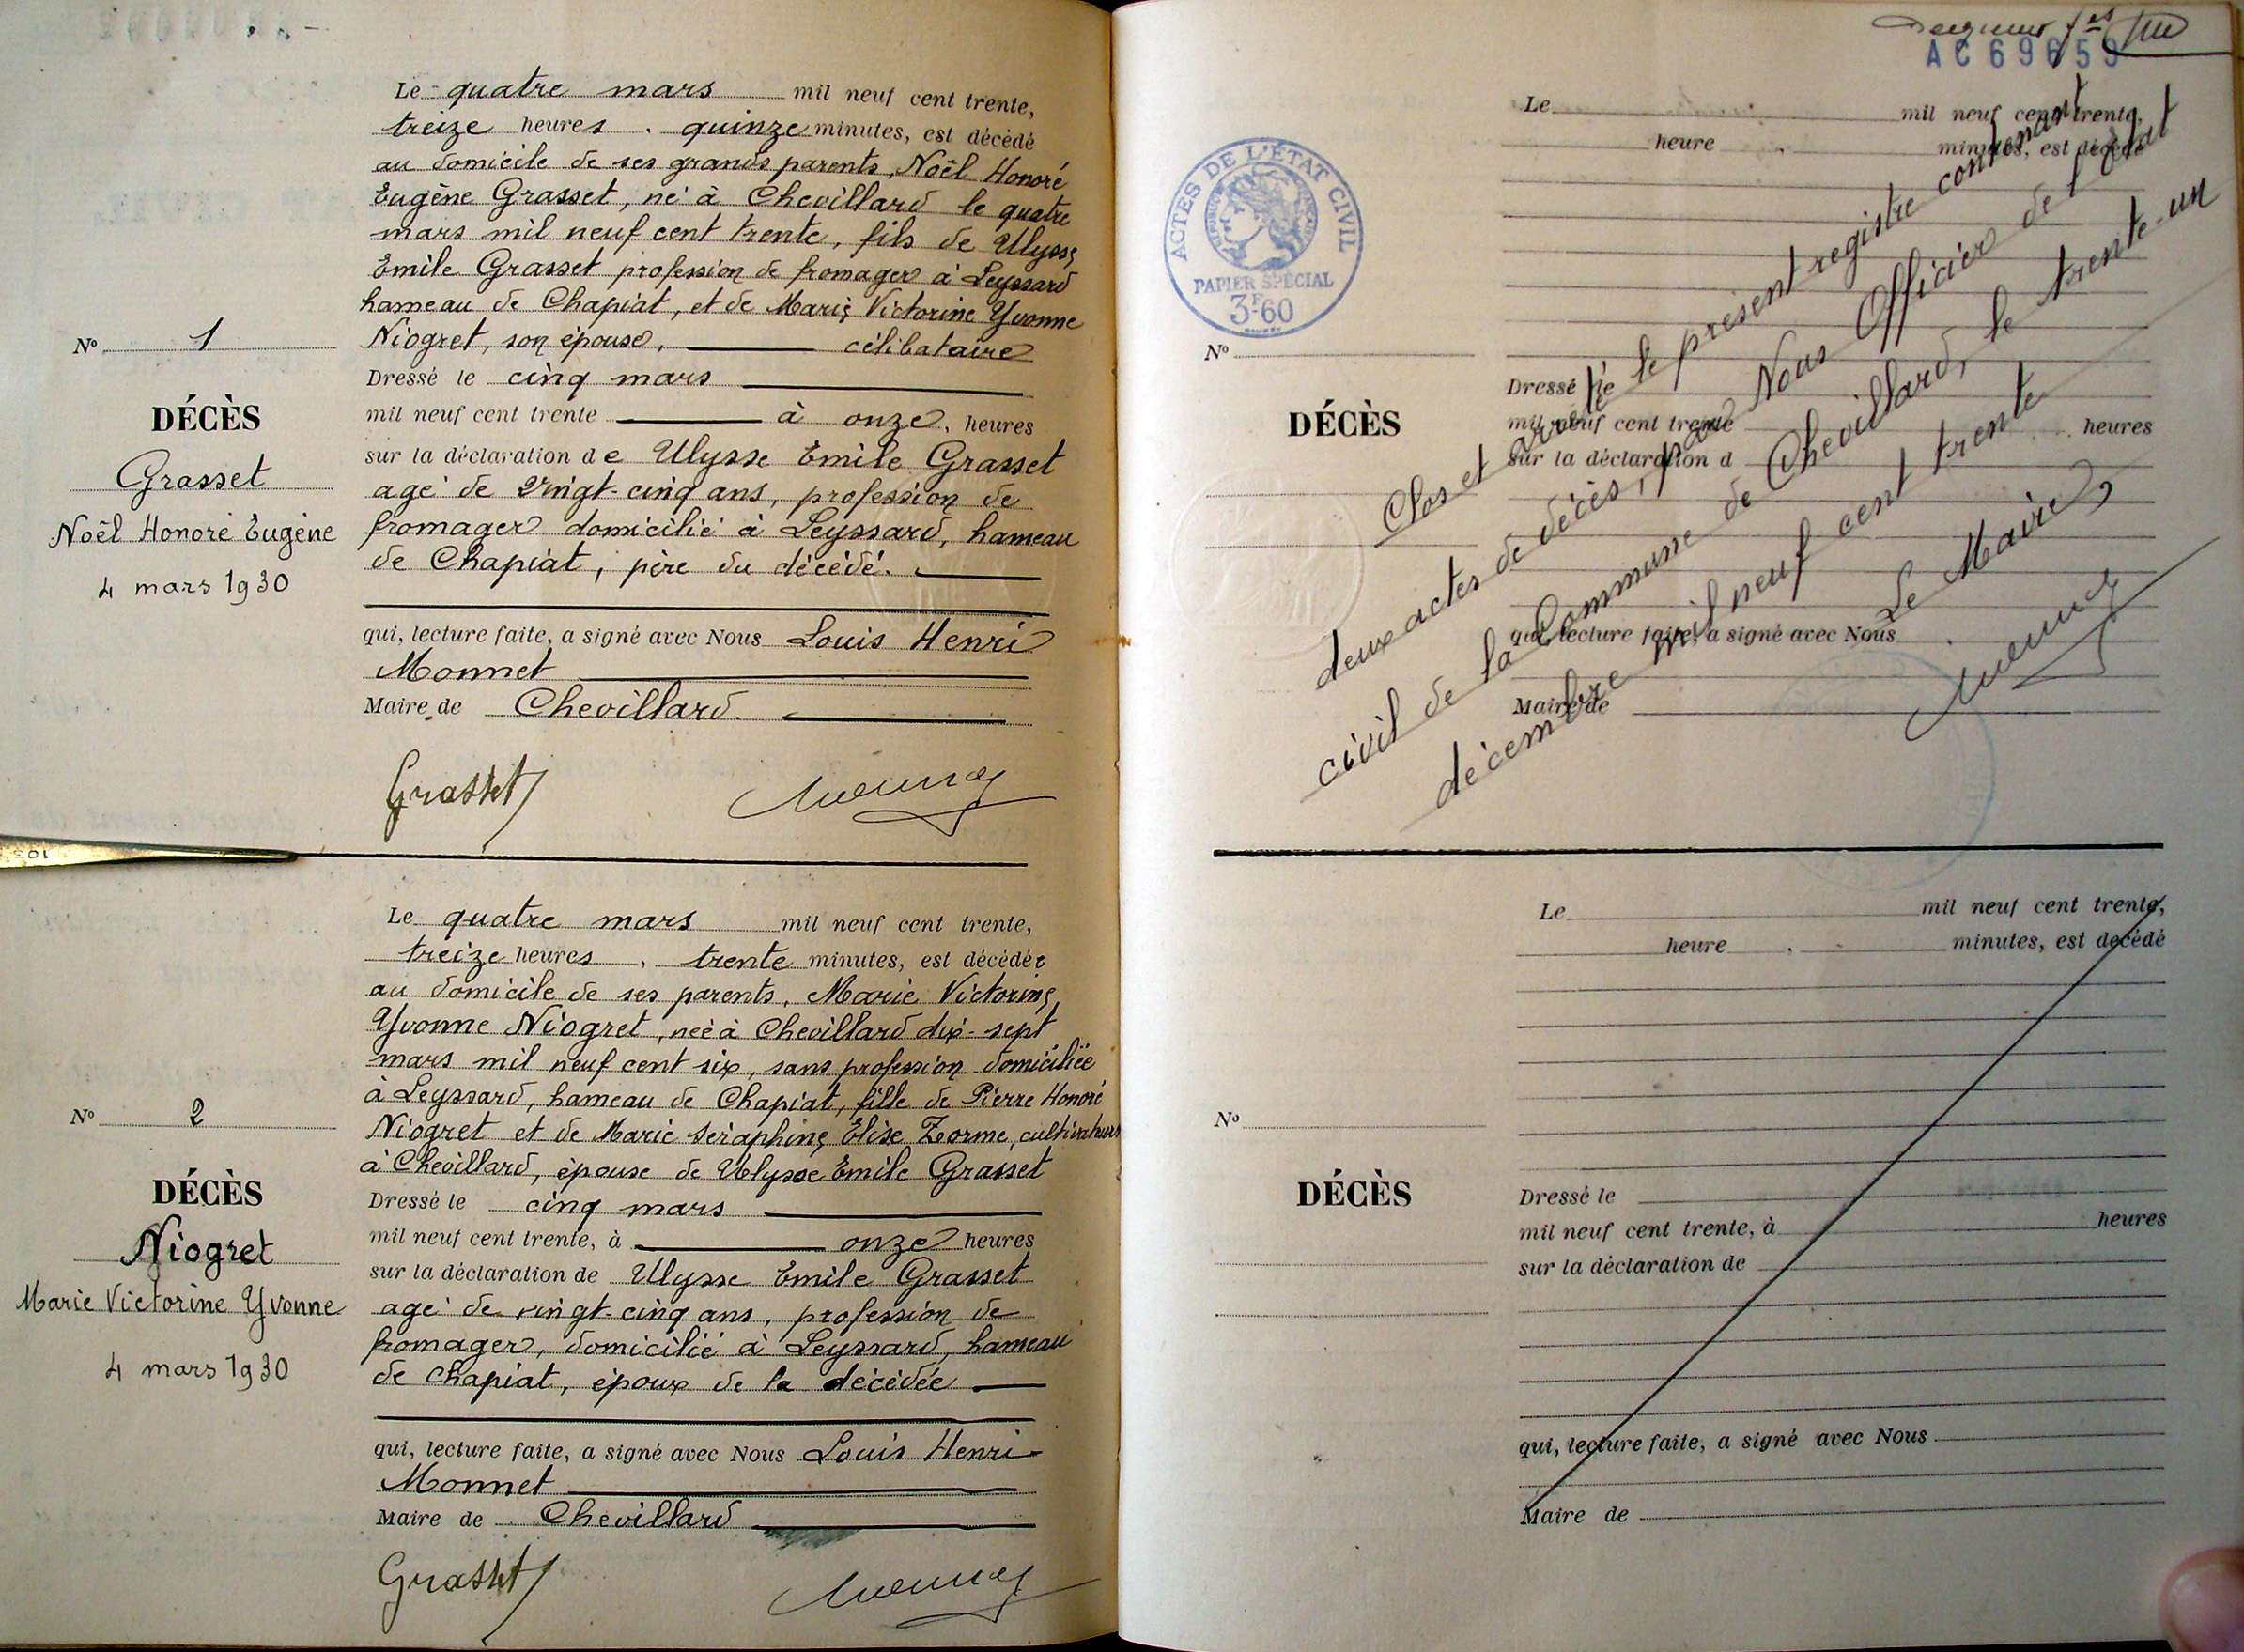 Le quatre mars mil neuf cent trente,
treize heures . quinze minutes, est décédé
au domicile de ses grands parents, Noël Honoré
Eugène Grasset, né à Chevillard le quatre
mars mil neuf cent trente, fils de Ulysse
Emile Grasset profession de fromager à Leyssard
hameau de Chapiat, et de Marie Victorine Yvonne
Niogret, son épouse, célibataire
Dressé le cinq mars
mil neuf cent trente à onze, heures
sur la déclaration de Ulysse Emile Grasset
agé de vingt-cinq ans, profession de
fromager domicilié à Leyssard, hameau
de Chapiat, père du décédé.
qui, lecture faite, a signé avec Nous Louis Henri
Monnet
Maire de Chevillard.
Grasset
No 1
DÉCÈS
Grasset
Noël Honoré Eugène
4 mars 1930
Le quatre mars mil neuf cent trente,
treize heures . trente minutes, est décédée
au domicile de ses parents, Marie Victorine
Yvonne Niogret, née à Chevillard dix-sept
mars mil neuf cent six, sans profession domiciliée
à Leyssard, hameau de Chapiat, fille de Pierre Honoré
Niogret et de Marie Séraphine Elise cultivateurs
à Chevillard, épouse de Ulysse Emile Grasset
Dressé le cinq mars
mil neuf cent trente, à onze heures
sur la déclaration de Ulysse Emile Grasset
agé de vingt-cinq ans, profession de
fromager, domicilié à Leyssard, hameau
de Chapiat, époux de la décédée
qui, lecture faite, a signé avec Nous Louis Henri
Monnet
Maire de Chevillard
Grasset
No 2
DÉCÈS
Niogret
Marie Victorine Yvonne
4 mars 1930
AC69659
ACTES DE L'ÉTAT CIVIL
PAPIER SPÉCIAL
3F60
Le mil neuf cent trente,
heure . minutes, est décédé
No
DÉCÈS
Dressé le
mil neuf cent trente heures
sur la déclaration d
qui, lecture faite, a signé avec Nous
Maire de
Clos et arrêté le présent registre contenant
deux actes de décès, par Nous Officier de l'état
civil de la Commune de Chevillard, le trente-un
décembre mil neuf cent trente
Le Maire,
Le mil neuf cent trente,
heure . minutes, est décédé
No
DÉCÈS
Dressé le
mil neuf cent trente, à heures
sur la déclaration de
qui, lecture faite, a signé avec Nous
Maire de